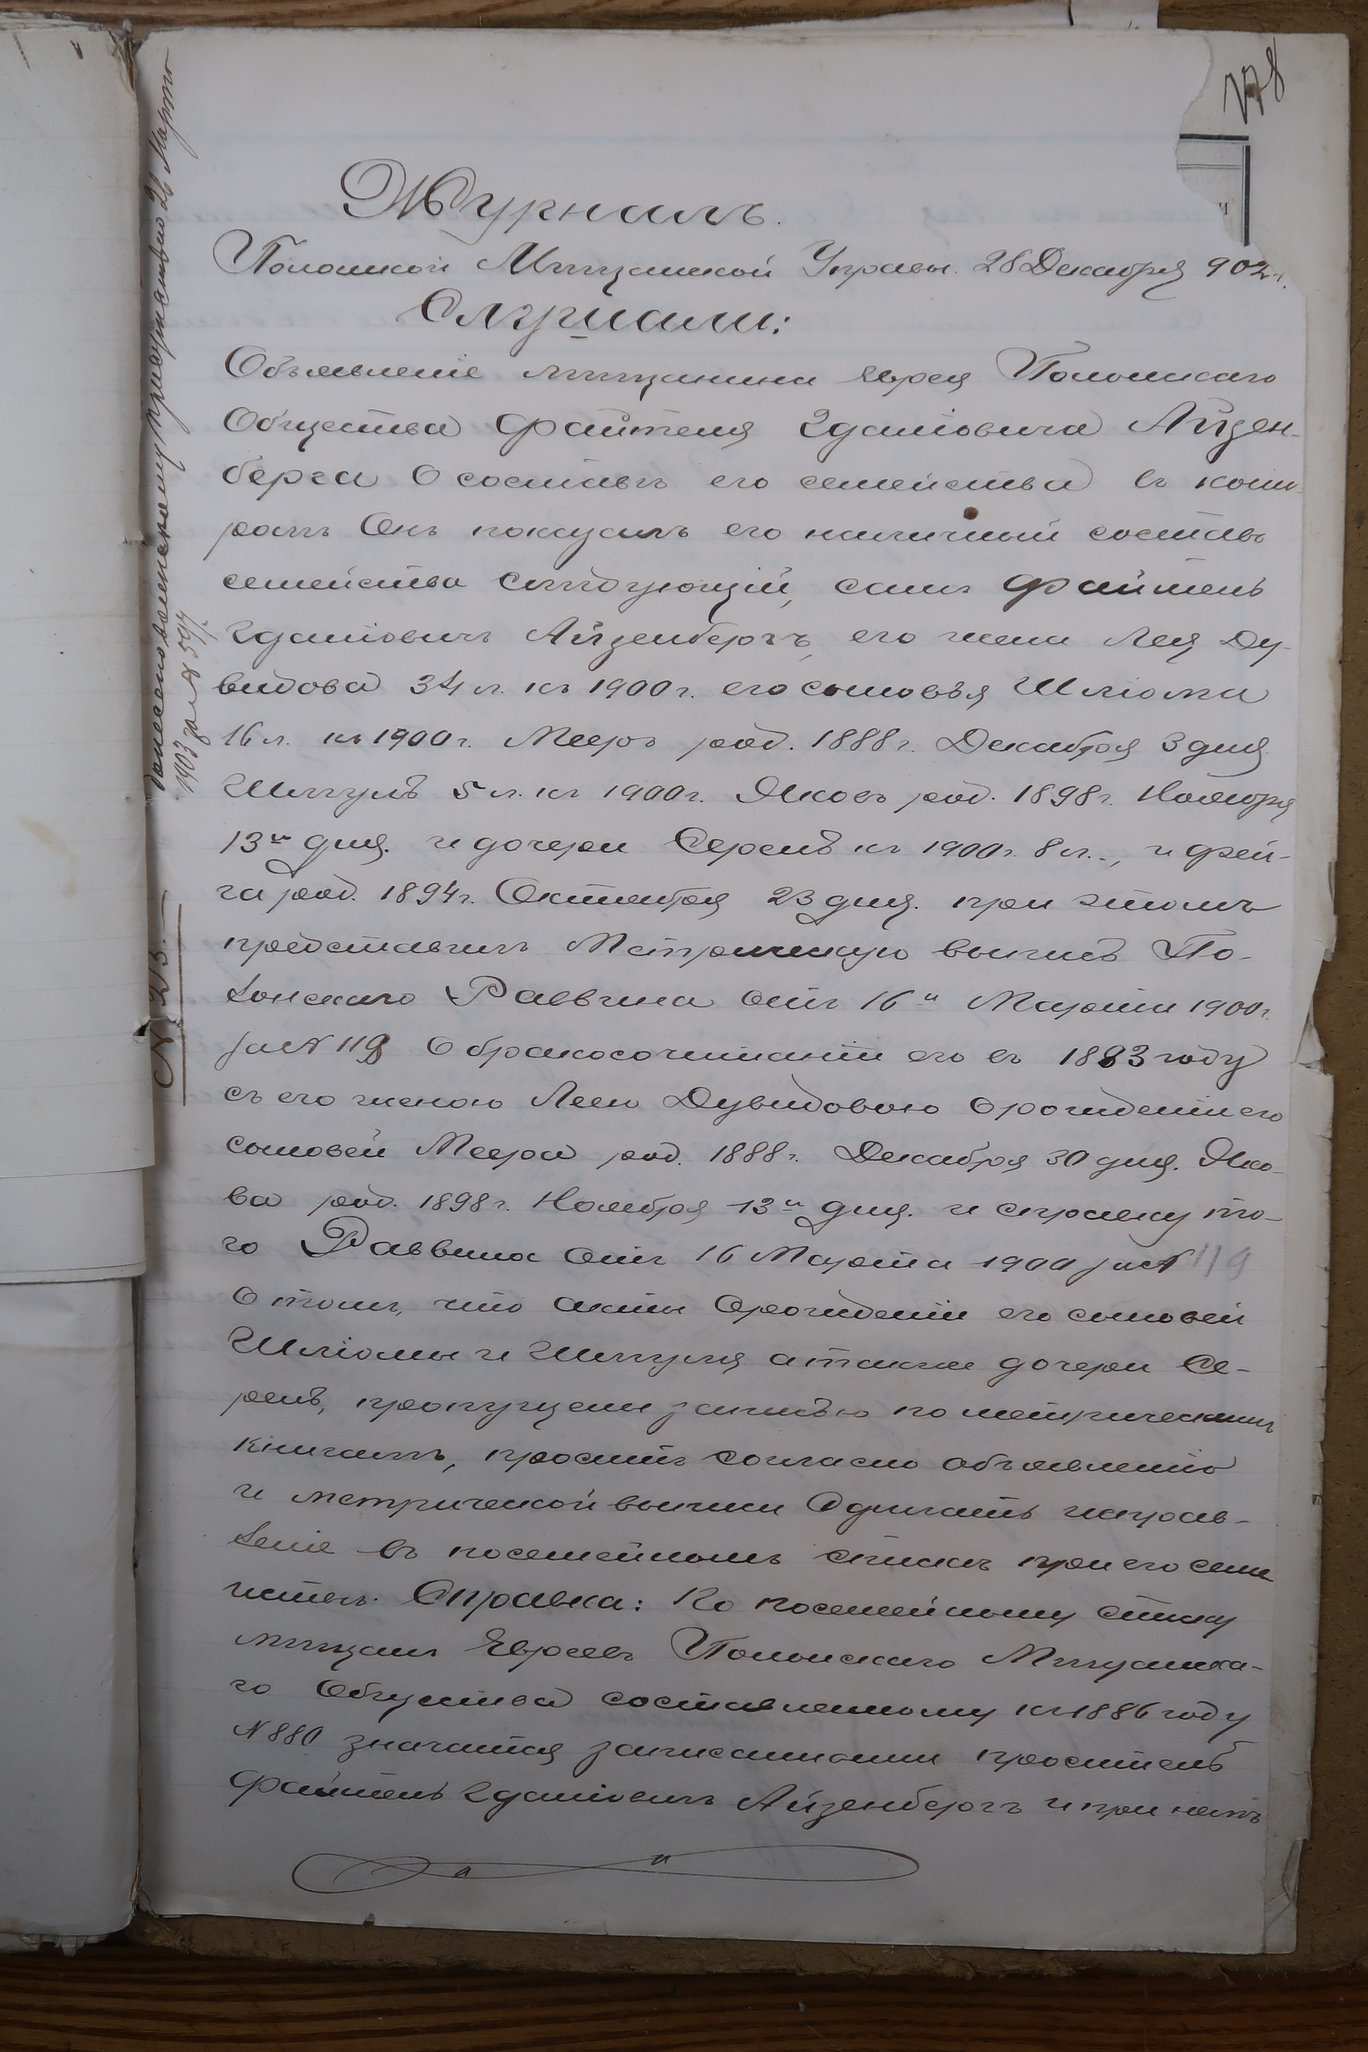 178
Журналъ.
Полонской Мѣщанской Управы. 28 Декабря 902 г.
Слушали:
Объявленіе мѣщанина еврея Полонскаго
Общества Файтеля Гдаліовича Айзен-
берга о составѣ его семейства въ кото-
ромъ онъ показалъ его наличный составъ
семейства слѣдующій, самъ Файтель
Гдаліовичъ Айзенбергъ, его жена Лея Ду-
видова 34 л. къ 1900 г. его сыновья Шліома
16 л. къ 1900 г. Мееръ род. 1888 г. Декабря 3 дня
Шмуль 5 л. къ 1900 г. Яковъ род. 1898 г. Ноября
13го дня. и дочери Серель къ 1900 г. 8 л., и Фей-
га род. 1894 г. Октября 23 дня. при этомъ
представилъ Метрическую выпись По-
лонскаго Раввина отъ 16го Марта 1900 г.
за № 119 о бракосочитаніи его въ 1883 году
съ его женою Леею Дувидовою о рожденіи его
сыновей Меера род. 1888 г. Декабря 30 дня. Яко-
ва род. 1898 г. Ноября 13го дня. и справку то-
го Раввина отъ 16 Марта 1900 за № 119
о томъ, что акты о рожденіи его сыновей
Шліомы и Шмуля а также дочери Се-
рель, пропущены записью по метрическимъ
книгамъ, проситъ согласно объявленію
и метрической выписи сдѣлать исправ-
леніе въ посемейномъ спискѣ при его семи
ствѣ. Справка: По посемейному списку
мѣщанъ Евреевъ Полонскаго Мѣщанска-
го Общества составленному къ 1886 году
№ 880 значатся записанными проситель
Файтель Гдаліовичъ Айзенбергъ и при немъ
Донесено воинскому присутствію 26 Марта
1903 за № 597
№ 213.